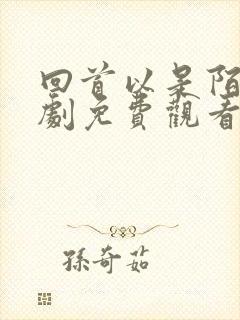 回首以是陌
劇免費觀看
孫奇茹